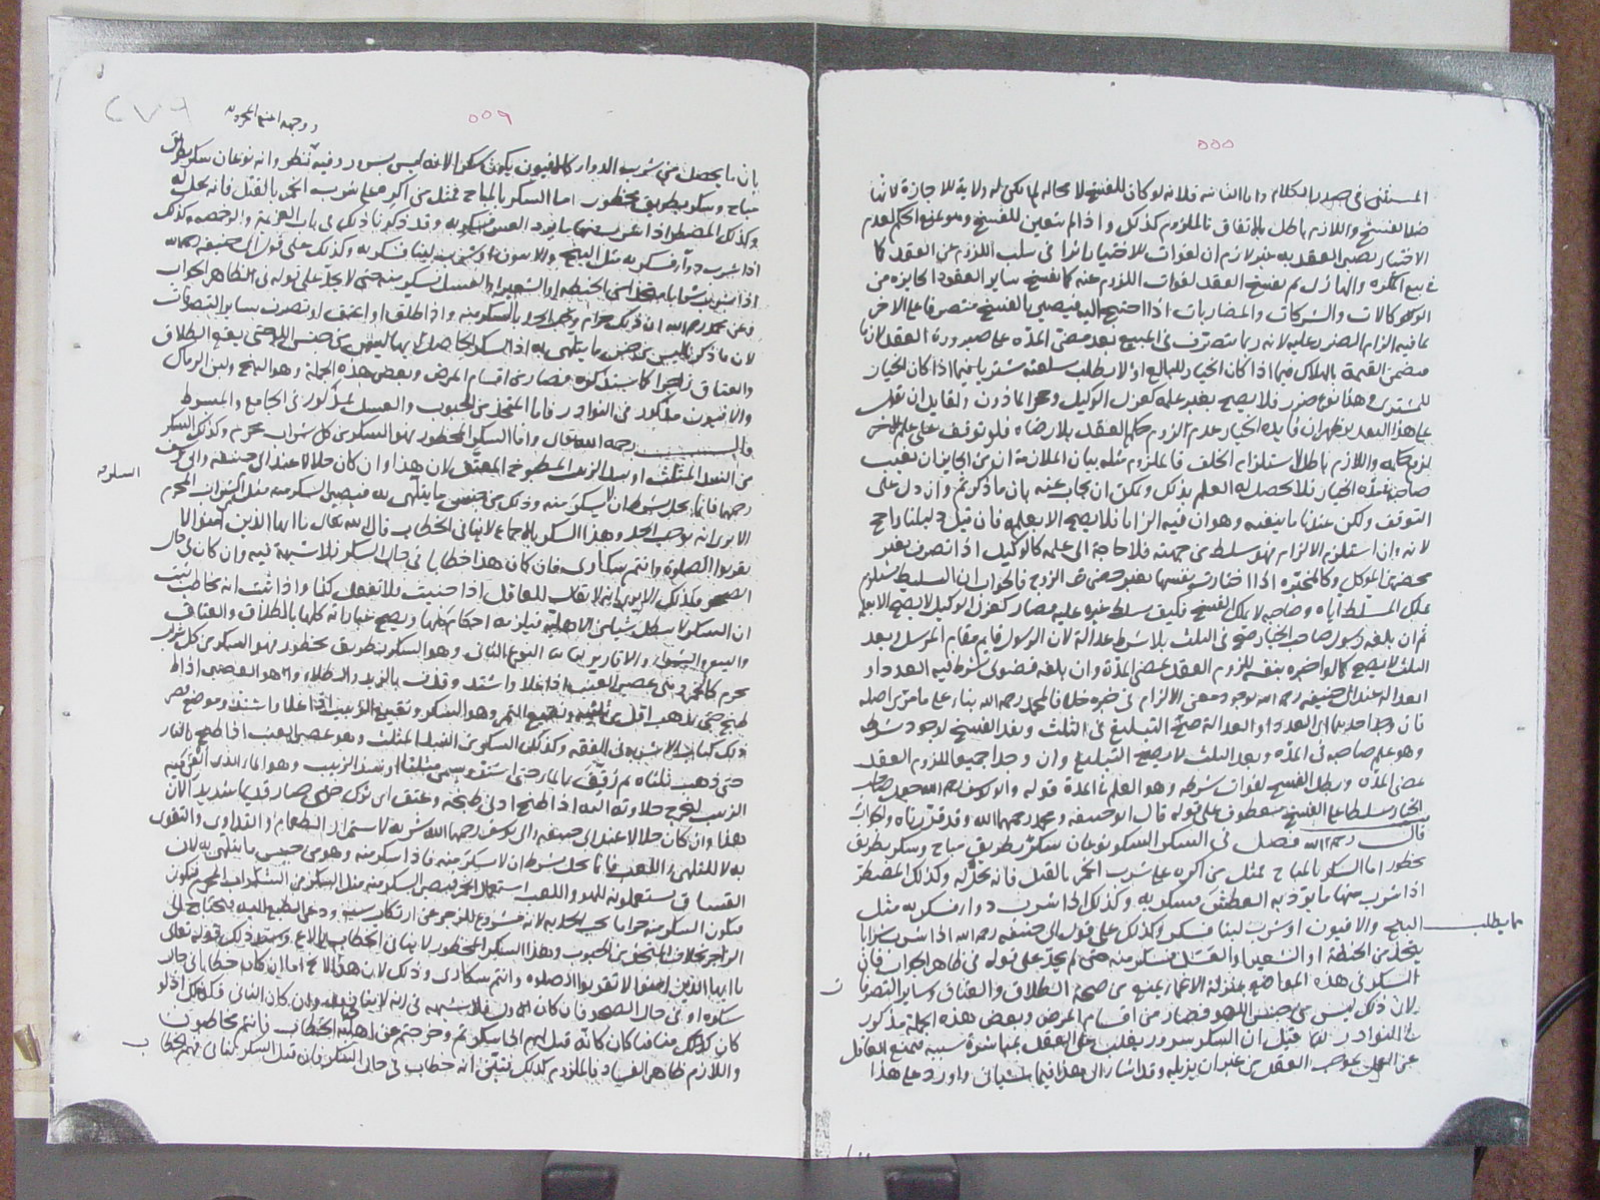 ٥٥٥
المستثنى في صدر الكلام واما الثاني فلانه لو كان للفسخ لا محالة لم يكن له ولاية للاجازة لانها
ضد الفسخ واللازم باطل بالاتفاق فالملزوم كذلك واذا لم يتعين للفسخ وهو عزم الحكم لعدم
الاختيار بقى العقد به غير لازم
في بيع المكره والهازل لم يفسخ العقد لفوات اللزوم عنه كما يفسخ سائر العقود الجايزة من
الوكالات والشركات والمضاربات اذا احتيج اليه فيصير بالفسخ متصرفا على الاخر
بما فيه الزام الضرر عليه لانه ربما يتصرف في المبيع بعد مضى المدة على صيرورة العقد لازما
فيضمن القيمة بالهلاك فيما اذا كان الخيار للبائع او لا يطلب سلعته مشتريا فيما اذا كان الخيار
للمشتري وهذا نوع ضرر فلا يصح بغير علمه كعزل الوكيل وحجر الماذون ولقايل ان يقول
على هذا التقدير يظهر ان فايدة الخيار عدم الزوم حكم العقد بلا رضاه فلو توقف على علم الاخر
لزم حكمه واللازم باطل لاستلزامه الخلف فالملزوم مثله بيان الملازمة ان من الجايز ان يغيب
صاحبه مدة الخيار فلا يحصل له العلم بذلك ويمكن ان يجاب عنه بان ما ذكرتم وان دل على
التوقف ولكن عندنا ما ينفيه وهو ان فيه الزاما فلا يصح الا بعلمه فان قيل دليلنا راجح
لانه وان استلزم الالزام فهو مسلط من جهته فلا حاجة الى علمه كالوكيل اذا تصرف بغير
محضر من الموكل وكالمخيرة اذا اختارت نفسها بغير محضر من الزوج فالجواب ان التسليط
تملك المسلط اياه وصاحبه لا يملك الفسخ فكيف سلط غيره عليه فصار كعزل الوكيل لا يصح الا بعلمه
ثم ان بلغه رسول صاحب الخيار صح في الثلث بلا شرط عدالة لان الرسول قايم مقام المرسل وبعد
الثلث لا يصح كما لو اخبره بنفسه للزوم العقد بمضى المدة وان بلغه فضولي شرط فيه العدد او
العدالة عند ابي حنيفة رحمه الله لوجود معنى الالزام في خبره خلافا لمحمد رحمه الله بناء على ما مر من اصله
فان وجد احدهما اي العدد او العدالة صح التبليغ في الثلث ونفذ الفسخ لوجود شرطه
وهو علم صاحبه في المدة وبعد الثلث لا يصح التبليغ وان وجدا جميعا للزوم العقد
بمضى المدة وبطل الفسخ لفوات شرطه وهو العلم في المدة قوله وابو يوسف رحمه الله جعل صاحب
الخيار مسلطا على الفسخ معطوف على قوله قال ابو حنيفة ومحمد رحمهما الله وقد قررناه والجواب
قال رحمه الله فصل في السكر السكر نوعان سكر بطريق مباح وسكر بطريق
محظور اما السكر بالمباح بمثل من اكره على شرب الخمر بالقتل فانه يحل له وكذلك المضطر
اذا شرب منها ما يرد به العطش فسكر به وكذلك اذا شرب دواء فسكر به مثل
البنج والافيون او شرب لبنا فسكر وكذلك على قول ابي حنيفة رحمه الله اذا شرب شرابا
يتخذ من الحنطة او الشعير او العسل فسكر منه حتى لم يحد على قوله في ظاهر الجواب فان
السكر في هذه المواضع بمنزلة الاغماء يمنع من صحة الطلاق والعتاق وسائر التصرفات
لان ذلك ليس من جنس اللهو فصار من اقسام المرض وبعض هذه الجملة مذكور
في النوادر قيل ان السكر سرور يغلب على العقل بمباشرة سببه فيمنع العاقل
عن العمل بموجب العقل من غير ان يزيله وقد اشار الى هذا فيما ياتي واورد على هذا
ما يطلب
٥٥٩
بان ما يحصل من شرب الدواء كالافيون يكون سكرا لانه ليس بسرور وفيه نظر وانه نوعان سكر بطريق
مباح وسكر بطريق محظور اما السكر بالمباح فمثل من اكره على شرب الخمر بالقتل فانه يحل له
وكذلك المضطر اذا شرب منها ما يرد العطش فسكر به وقد ذكرنا ذلك في باب العزيمة والرخصة وكذلك
اذا شرب دواء فسكر به مثل البنج والافيون او شرب لبنا فسكر به وكذلك على قول ابي حنيفة رحمه الله
اذا شرب شرابا يتخذ من الحنطة او الشعير او العسل فسكر منه حتى لا يحد على قوله في الظاهر الجواب
وعن محمد رحمه الله ان ذلك حرام ويجب الحد بالسكر منه واذا طلق او اعتق او تصرف بسائر التصرفات
والعتاق زاجرا كما سنذكره فصار من اقسام المرض وبعض هذه الجملة وهو البنج ولبن الرماك
والافيون مذكور في النوادر فاما المتخذ من الحبوب والعسل فمذكور في الجامع والمبسوط
قال رحمه الله تعالى واما السكر المحظور فهو السكر من كل شراب محرم وكذلك السكر
من النبيذ المثلث او نبيذ الزبيب المطبوخ المعتق لان هذا وان كان حلالا عند ابي حنيفة وابي يوسف
رحمهما فانما يحل بشرط ان لا يسكر منه وذلك من جنس ما يتلهى به فيصير السكر منه مثل الشراب المحرم
الا يرى انه يوجب الحد وهذا السكر بالاجماع لا ينافي الخطاب قال الله تعالى يا ايها الذين آمنوا لا
تقربوا الصلوة وانتم سكارى فان كان هذا خطابا في حال السكر فلا شبهة فيه وان كان في حال
الصحو فكذلك الا يرى انه لا يقال للعاقل اذا جننت فلا تفعل كذا واذا ثبت انه مخاطب ثبت
ان السكر لا يبطل شيئا من الاهلية فيلزمه احكام الشرع كلها ويصح عباراته كلها بالطلاق والعتاق
والبيع والشراء والاقارير بيان النوع الثاني وهو السكر بطريق محظور فهو السكر من كل شراب
محرم كالخمر وهي عصير العنب اذا غلا واشتد وقذف بالزبد والطلاء وهو العصير اذا
طبخ حتى ذهب اقل من ثلثيه ونقيع التمر وهو السكر ونقيع الزبيب اذا غلا واشتد وموضع تحرير
ذلك كتاب الاشربة في الفقه وكذلك السكر من النبيذ المثلث وهو عصير العنب اذا طبخ بالنار
حتى ذهب ثلثاه ثم رقق بالماء حتى اشتد ويسمى مثلثا او نبيذ الزبيب وهو الماء الذي القى فيه
الزبيب ليخرج حلاوته اليه اذا طبخ ادنى طبخة وعتق اي ترك حتى صار قديما شديدا لان
هذا وان كان حلالا عند ابي حنيفة وابي يوسف رحمهما الله شربه لاستمراء الطعام او التداوي والتقوى
به لا للتلهي واللعب فانما يحل بشرط ان لا يسكر منه فاذا سكر منه وهو من جنس ما يتلهى به لان
الفساق يستعملونه للهو واللعب استعمال الخمر فيصير السكر منه مثل السكر من الشراب المحرم فيكون
فيكون السكر منه حراما يجب الحد به لانه مشروع للزجر عن ارتكاب سببه ودعى الطبع اليه فيحتاج الى
الزاجر بخلاف المتخذ من الحبوب وهذا السكر المحظور لا ينافي الخطاب بالاجماع ويستدل ذلك قوله تعالى
يا ايها الذين آمنوا لا تقربوا الصلوة وانتم سكارى وذلك لان هذا لا يخ اما ان كان خطابا في حال
سكره او في حال الصحو فان كان الاول فلا شبهة في انه لا ينافي وان كان الثاني فكذلك اذ لو
كان السكر منافيا كان كانه قيل لهم اذا سكرتم وخرجتم عن اهلية الخطاب فانتم مخاطبون
واللازم ظاهر الفساد فالملزوم كذلك فتبين انه خطاب في حال السكر فان قيل السكر ينافي فهم الخطاب